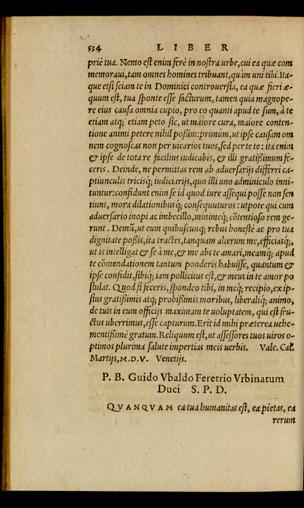 534 LIBER
priè tua. Nemo est enim ferè in nostra urbe, cui ea quæ com
memoraui, tam omnes homines tribuant, quàm uni tibi. Ita-
que etsi sciam te in Dominici controuersia, ea quæ fieri æ-
quum est, tua sponte esse facturum, tamen quia magnope-
re eius causa omnia cupio, pro eo quanti apud te sum, à te
etiam atq; etiam peto sic, ut maiore cura, maiore conten-
tione animi petere nihil possim: primùm, ut ipse causam om
nem cognoscas non per uicarios tuos, sed per te te: ita enim
& ipse de tota re facilius iudicabis, & illi gratissimum fe-
ceris. Deinde, ne permittas rem ab aduersarijs differri ca-
ptiunculis tricisq; iudiciarijs, quo illi uno adminiculo inni-
tuntur: confidunt enim se id quod iure assequi posse non sen
tiunt, mora dilationibusq; consequuturos: utpote qui cum
aduersario inopi ac imbecillo, minimeq; cōtentioso rem ge-
runt. Demū, ut eum quibuscunq; rebus honestè ac pro tua
dignitate poßis, ita tractes, tanquam alterum me, efficiasq;,
ut is intelligat & se à me, & me abs te amari, meamq; apud
te cōmendationem tantum ponderis habuisse, quantum &
ipse confidit, sibiq; tam pollicitus est, & meus in te amor po
stulat. Quod si feceris, spondeo tibi, in meq; recipio, ex ip-
sius gratissimis atq; probissimis moribus, liberaliq; animo,
de tuis in eum officijs maximam te uoluptatem, qui est fru-
ctus uberrimus, esse capturum. Erit id mihi præterea uehe-
mentissimè gratum. Reliquum est, ut assessores tuos uiros o-
ptimos plurima salute impertias meis uerbis. Vale. Cal.
Martijs, M. D. V. Venetijs.
P. B. Guido Vbaldo Feretrio Vrbinatum
Duci S. P. D.
QVANQVAM ea tua humanitas est, ea pietas, ea
rerum